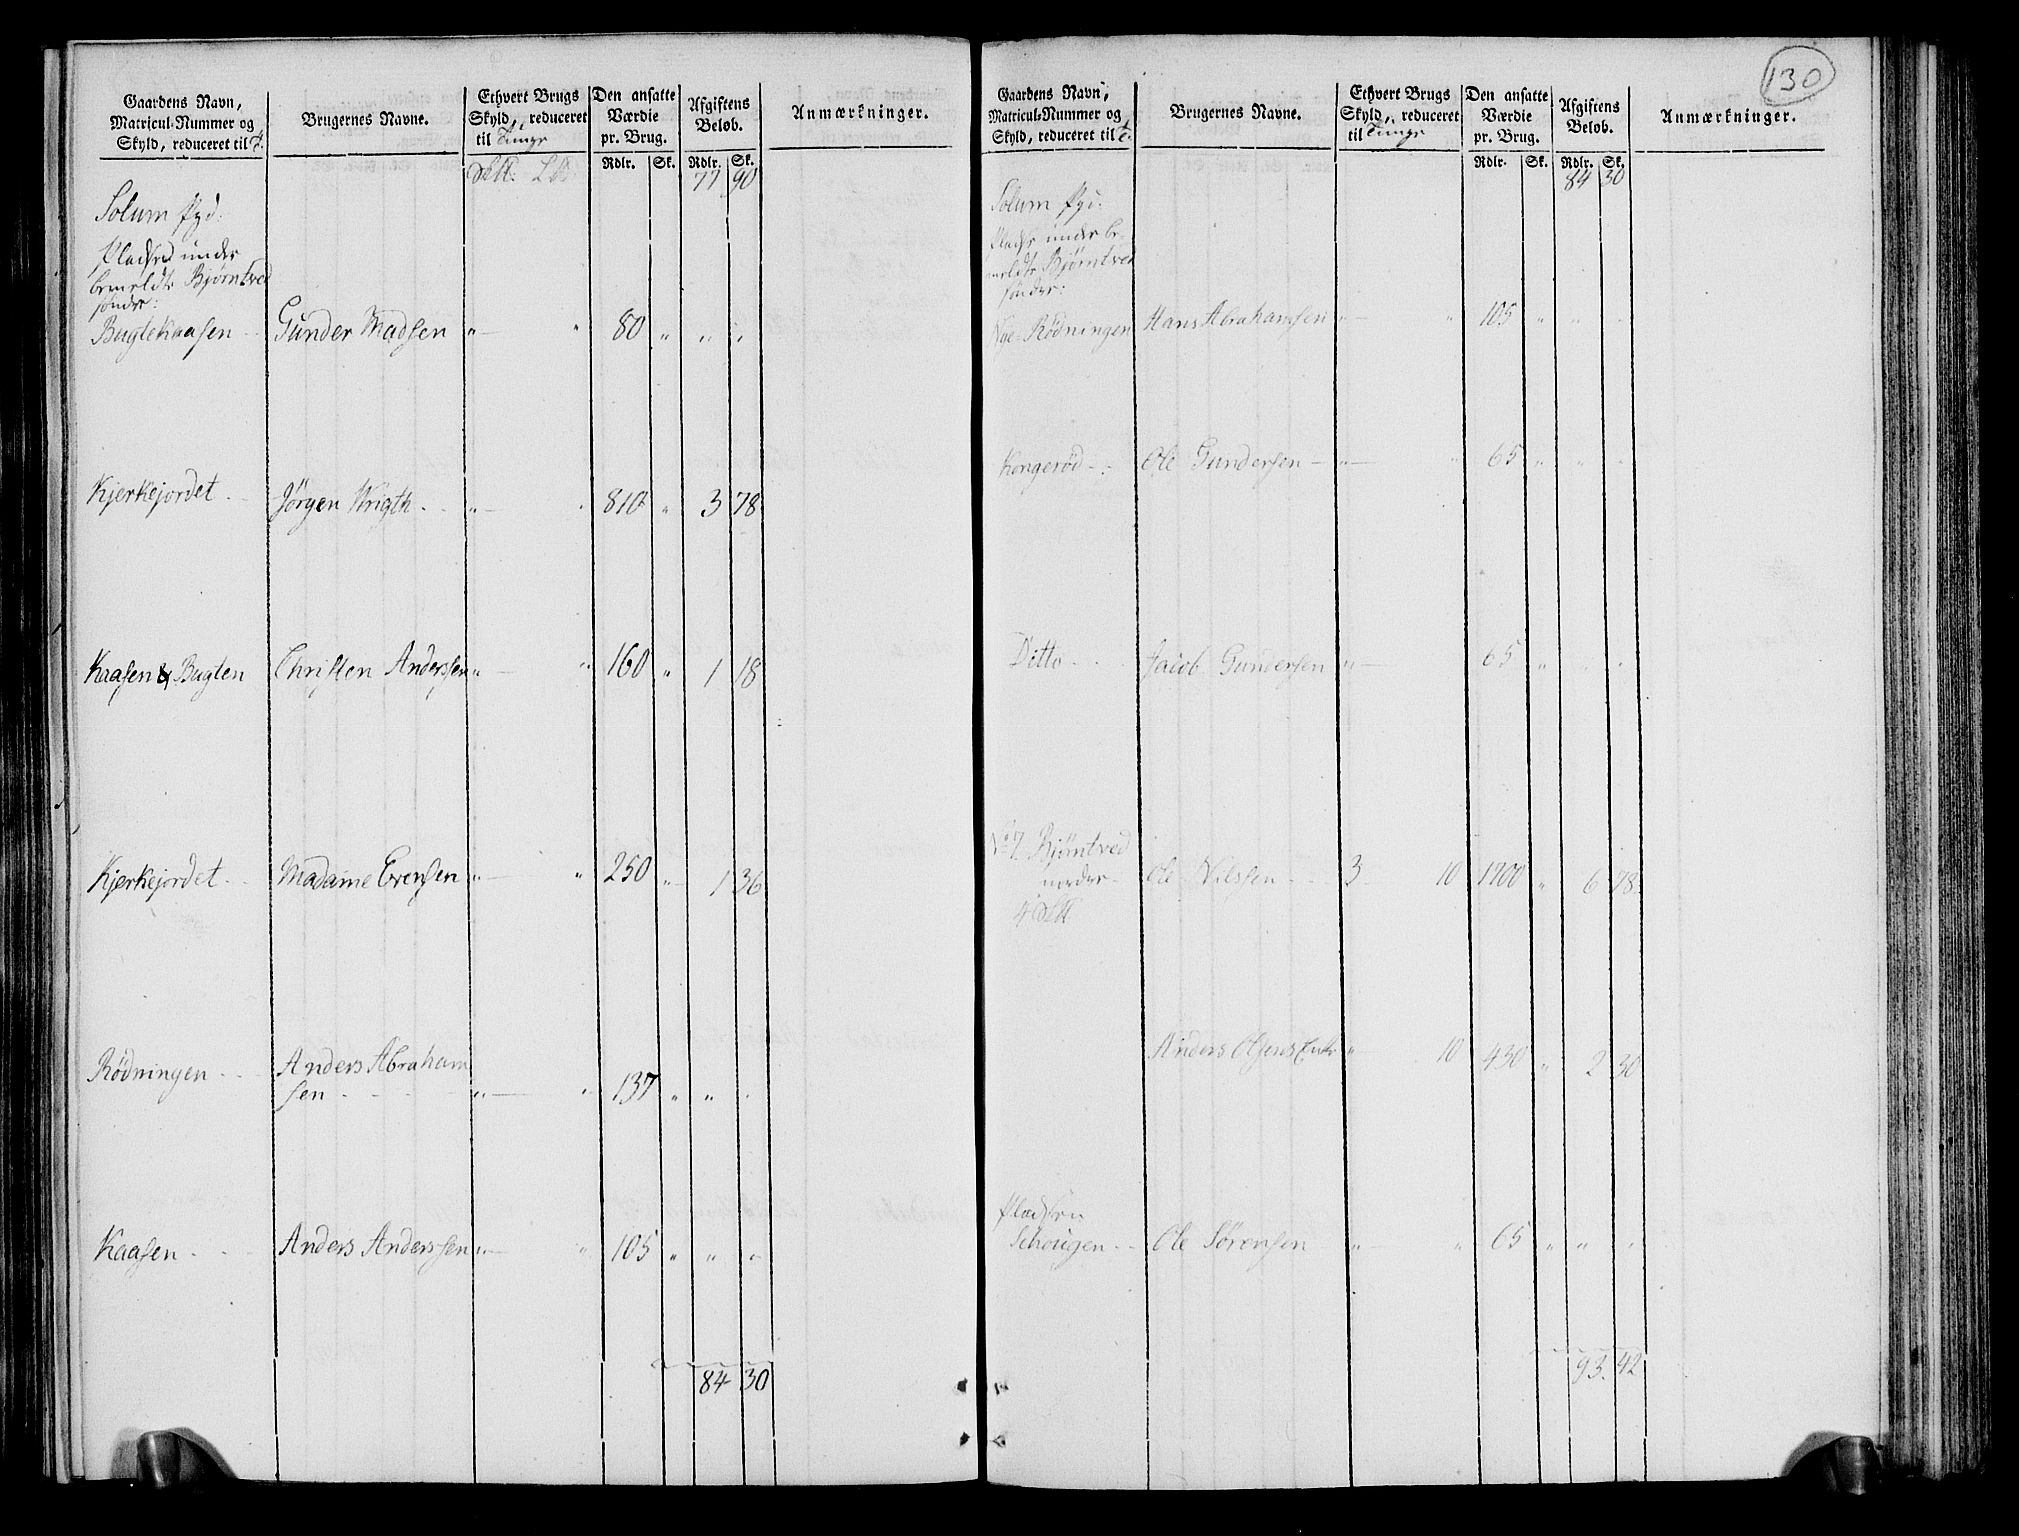 Gaardens Navn,
Matricul-Nummer og
Skyld, reduceret til
Brugernes Navne.
Ethvert Brugs
Skyld, reduceret
til Tunge
Den ansatte
Værdie
pr. Brug.
Afgiftens
Beløb.
Anmærkninger.
Rdlr. Sk. Rdlr. Sk.
77 90
Solum
Pladser under
bemeldte Bjørntved
søndre:
Buglekaasen Gunder Madsen " " 80 " " "
Kjerkejordet Jørgen Wrigth " " 810 " 3 78
Kaasen & Bugten Christen Anderssen " " 160 " 1 18
Kjerkejordet Madame Evensen " " 250 " 1 36
Rödningen Anders Abraham
sen " " 137 " " "
Kaasen Anders Anderssen " " 105 " " "
84 30
130
Gaardens Navn,
Matricul-Nummer og
Skyld, reduceret til
Brugernes Navne.
Ethvert Brugs
Skyld, reduceret
til Tunge
Den ansatte
Værdie
pr. Brug.
Afgiftens
Beløb.
Anmærkninger.
Rdlr. Sk. Rdlr. Sk.
84 30
Solum
Pladse under be-
meldte Bjørntved
søndre:
Nye Rödningen Hans Abrahamsen " " 105 " " "
Kongeröd Ole Gundersen " " 65 " " "
Ditto Jacob Gundersen " 65 " " "
No 7 Bjørntved
nordre Ole Nilssen 3 10 1700 " 6 78
4
Anders Olsens Enke " 10 430 " 2 30
Pladsen
Schougen Ole Sørensen " " 65 " " "
93 42